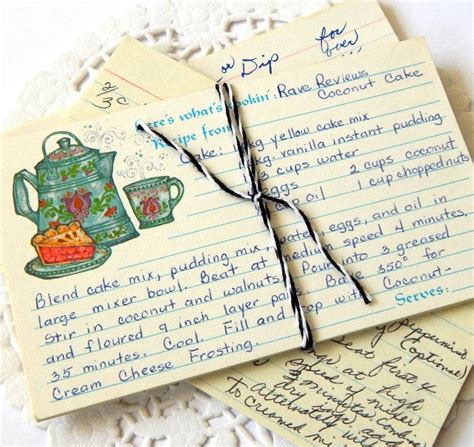 for
or Dip
ever
2/3 c
ere's what's ookin': Rave Reviews
Coconut Cake
Recipe from
Cake: kg yellow cake mix
kg. vanilla instant pudding
cups water
eggs 2 cups coconut
p oil 1 cup chopped nuts
Blend cake mix, pudding mix, water, eggs, and oil in
large mixer bowl. Beat at medium speed 4 minutes.
Stir in coconut and walnuts. Pour into 3 greased
and floured 9 inch layer pans. Bake 350° for
35 minutes. Cool. Fill and top with Coconut-
Cream Cheese Frosting.
Serves:
(optional)
eat first 4
gs at high
minutes
to creamed